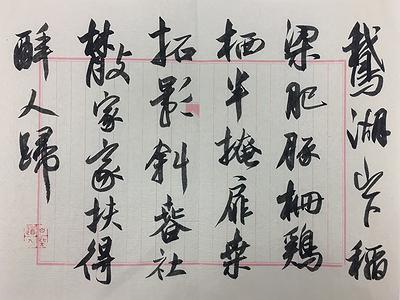 鵞湖山下稻
梁肥豚柵鷄
栖半掩扉桑
柘影斜春社
散家家扶得
酔人歸